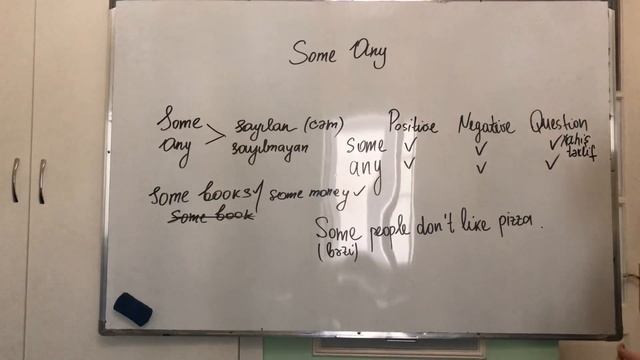 Some Any
Some
any > sayılan (cəm)
sayılmayan
Positive Negative Question
some ✓ ✓ ✓ xahiş
təklif
any ✓ ✓ ✓
Some books ✓ / some money ✓
Some book
Some people don't like pizza.
(bəzi)